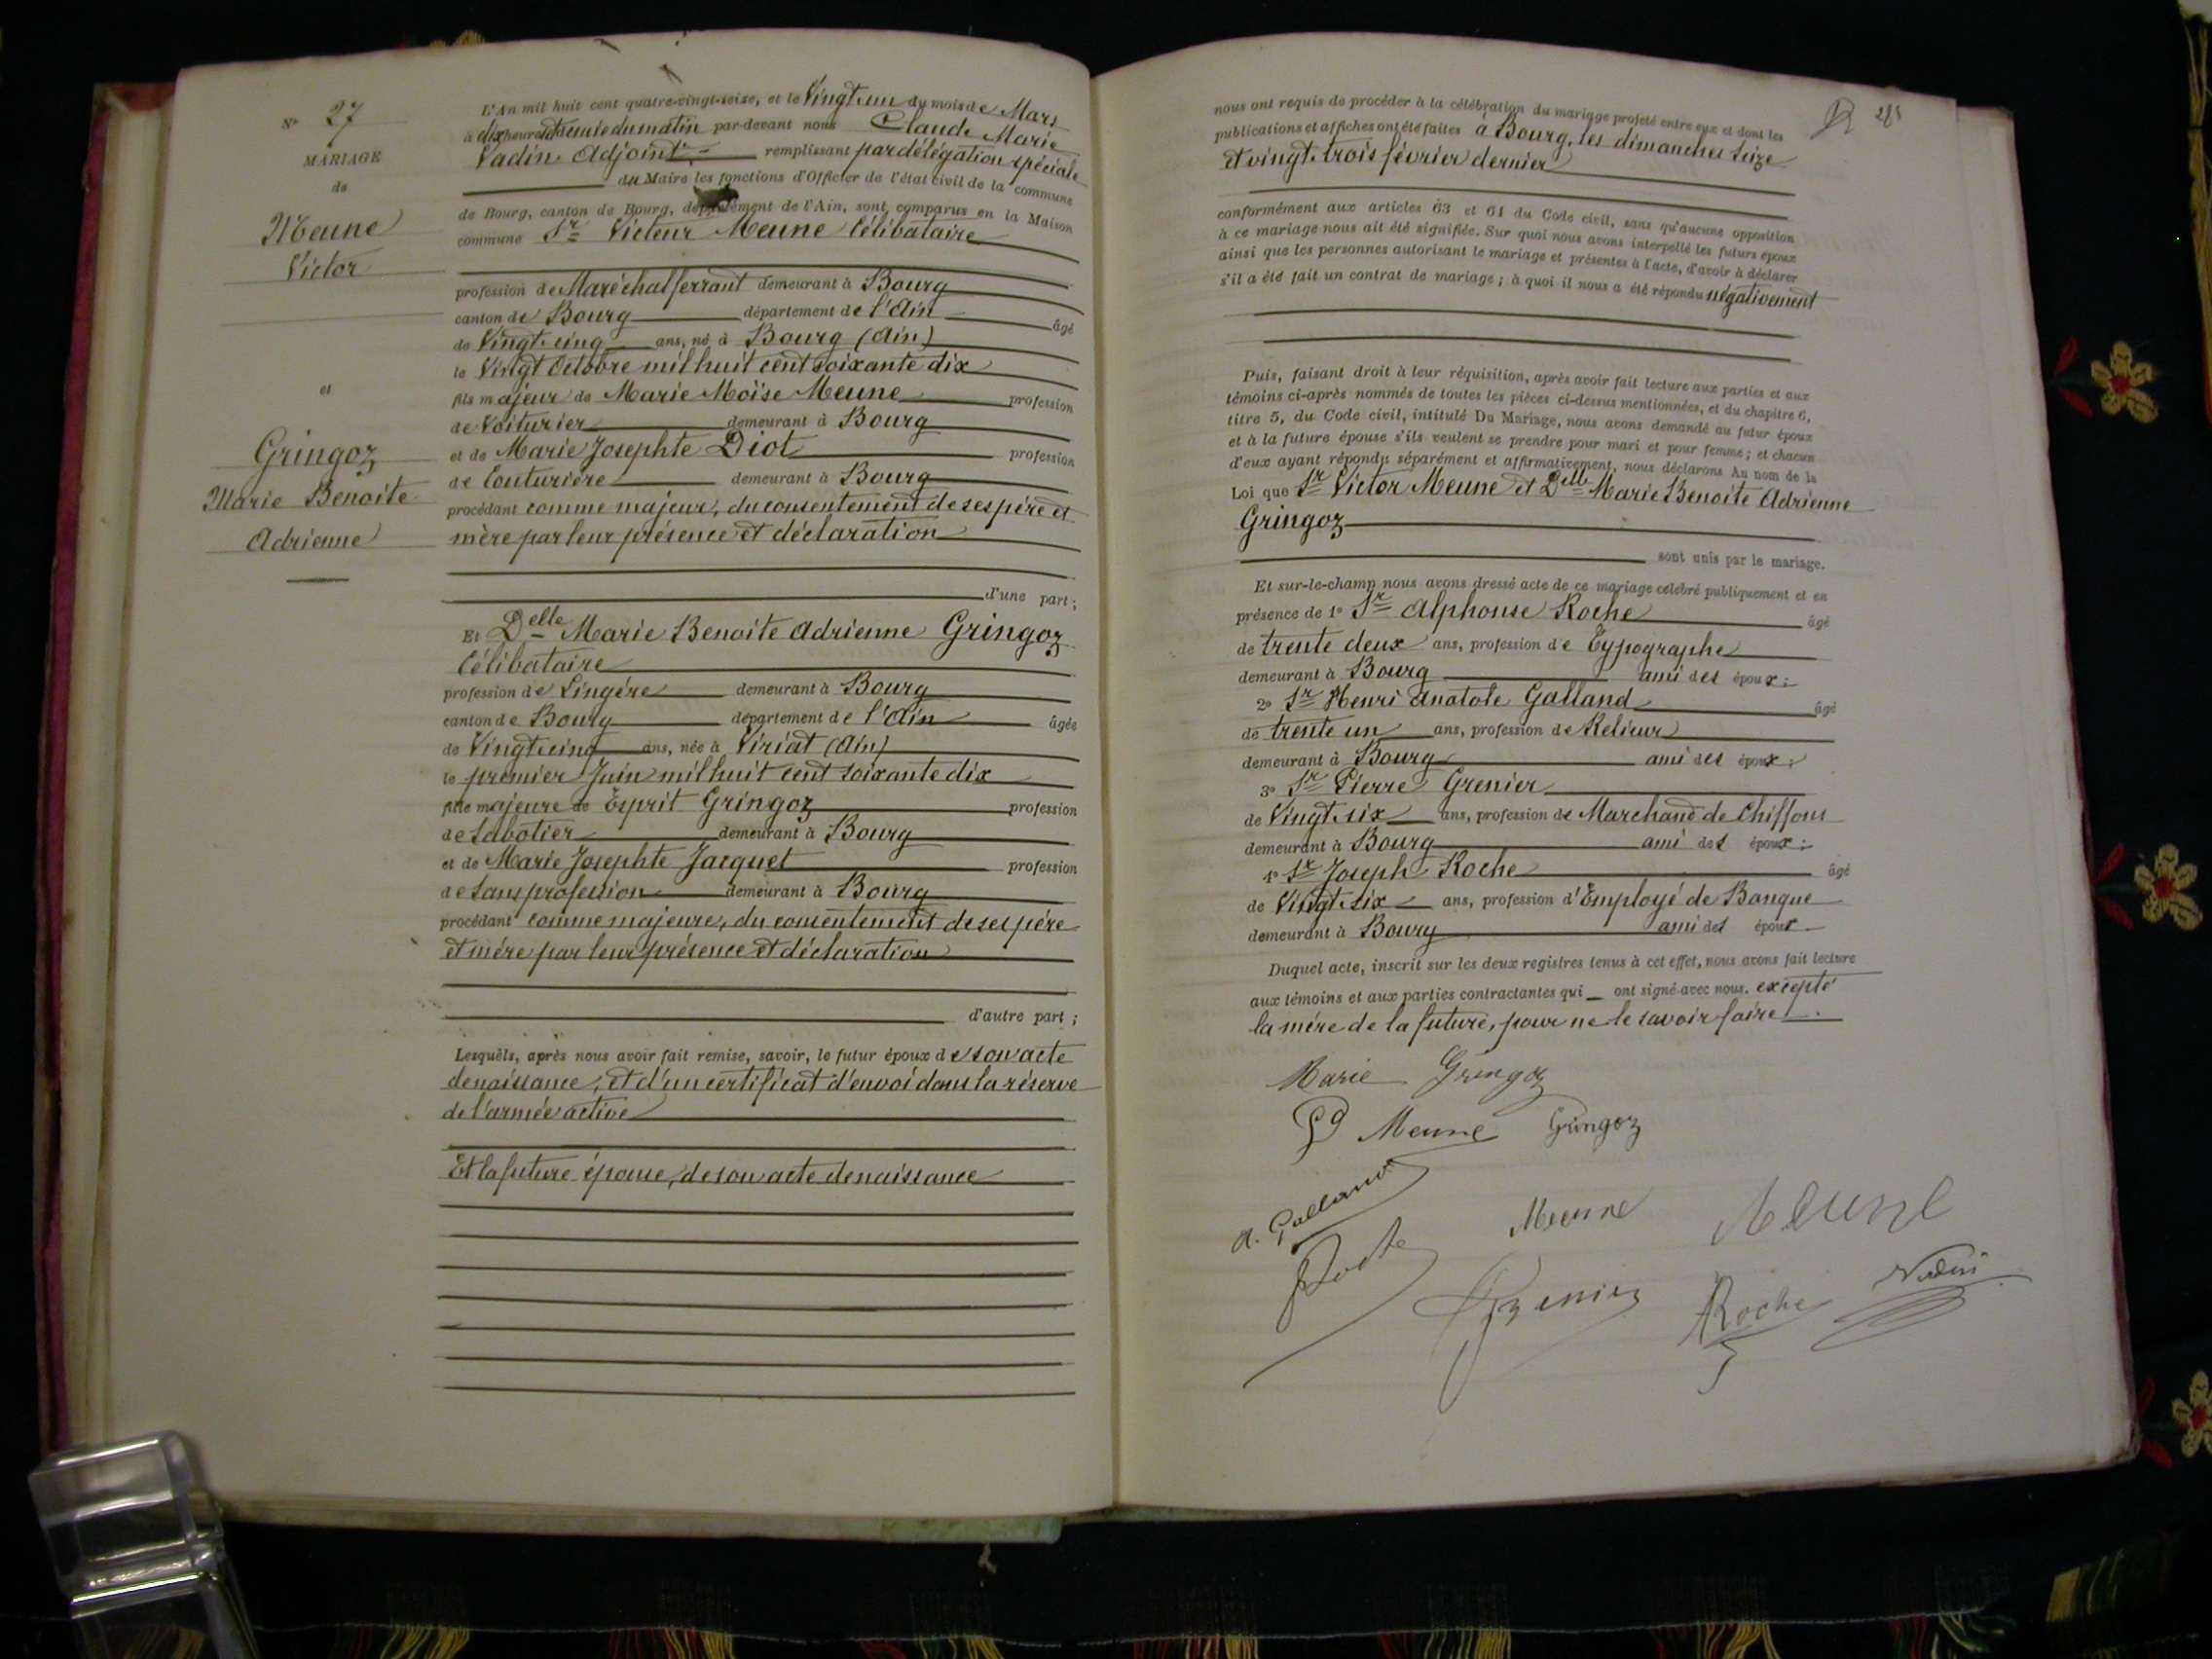 N° 27
MARIAGE
de
Meune
Victor
et
Gringoz
Marie Benoite
Adrienne
L'An mil huit cent quatre-vingt-seize, et le Vingt un du mois de Mars
à dix heures et demie du matin par-devant nous Claude Marie
Vadin Adjoint remplissant par délégation spéciale
du Maire les fonctions d'Officier de l'état civil de la commune
de Bourg, canton de Bourg, département de l'Ain, sont comparus en la Maison
commune Sr Victor Meune Célibataire
profession de Maréchal ferrant demeurant à Bourg
canton de Bourg département de l'Ain âgé
de Vingt cinq ans, né à Bourg (Ain)
le Vingt Octobre mil huit cent soixante dix
fils majeur de Marie Moïse Meune profession
de Voiturier demeurant à Bourg
et de Marie Josephte Diot profession
de Couturière demeurant à Bourg
procédant comme majeur, du consentement de ses père et
mère par leur présence et déclaration
d'une part;
Et Delle Marie Benoite Adrienne Gringoz
Célibataire
profession de Lingère demeurant à Bourg
canton de Bourg département de l'Ain âgée
de Vingt cinq ans, née à Viriat (Ain)
le premier Juin mil huit cent soixante dix
fille majeure de Esprit Gringoz profession
de Sabotier demeurant à Bourg
et de Marie Josephte Jacquet profession
de Sans profession demeurant à Bourg
procédant comme majeure, du consentement de ses père
et mère par leur présence et déclaration
d'autre part;
Lesquels, après nous avoir fait remise, savoir, le futur époux de son acte
de naissance, et d'un certificat d'envoi dans la réserve
de l'armée active
Et la future épouse, de son acte de naissance
nous ont requis de procéder à la célébration du mariage projeté entre eux et dont les
publications et affiches ont été faites à Bourg, les dimanches seize
et vingt-trois février dernier
conformément aux articles 63 et 64 du Code civil, sans qu'aucune opposition
à ce mariage nous ait été signifiée. Sur quoi nous avons interpellé les futurs époux
ainsi que les personnes autorisant le mariage et présentes à l'acte, d'avoir à déclarer
s'il a été fait un contrat de mariage; à quoi il nous a été répondu négativement
Puis, faisant droit à leur réquisition, après avoir fait lecture aux parties et aux
témoins ci-après nommés de toutes les pièces ci-dessus mentionnées, et du chapitre 6,
titre 5, du Code civil, intitulé Du Mariage, nous avons demandé au futur époux
et à la future épouse s'ils veulent se prendre pour mari et pour femme; et chacun
d'eux ayant répondu séparément et affirmativement, nous déclarons Au nom de la
Loi que Sr Victor Meune et Delle Marie Benoite Adrienne
Gringoz
sont unis par le mariage.
Et sur-le-champ nous avons dressé acte de ce mariage célébré publiquement et en
présence de 1° Sr Alphonse Roche âgé
de trente deux ans, profession de Typographe
demeurant à Bourg ami des époux;
2° Sr Henri Anatole Galland âgé
de trente un ans, profession de Relieur
demeurant à Bourg ami des époux;
3° Sr Pierre Grenier
de Vingt six ans, profession de Marchand de Chiffons
demeurant à Bourg ami des époux;
4° Sr Joseph Roche âgé
de Vingt six ans, profession d'Employé de Banque
demeurant à Bourg ami des époux
Duquel acte, inscrit sur les deux registres tenus à cet effet, nous avons fait lecture
aux témoins et aux parties contractantes qui ont signé avec nous. excepté
la mère de la future, pour ne le savoir faire.
Marie Gringoz
Meune Gringoz
A. Galland
Meune Meune
Roche
Grenier Roche Vadin